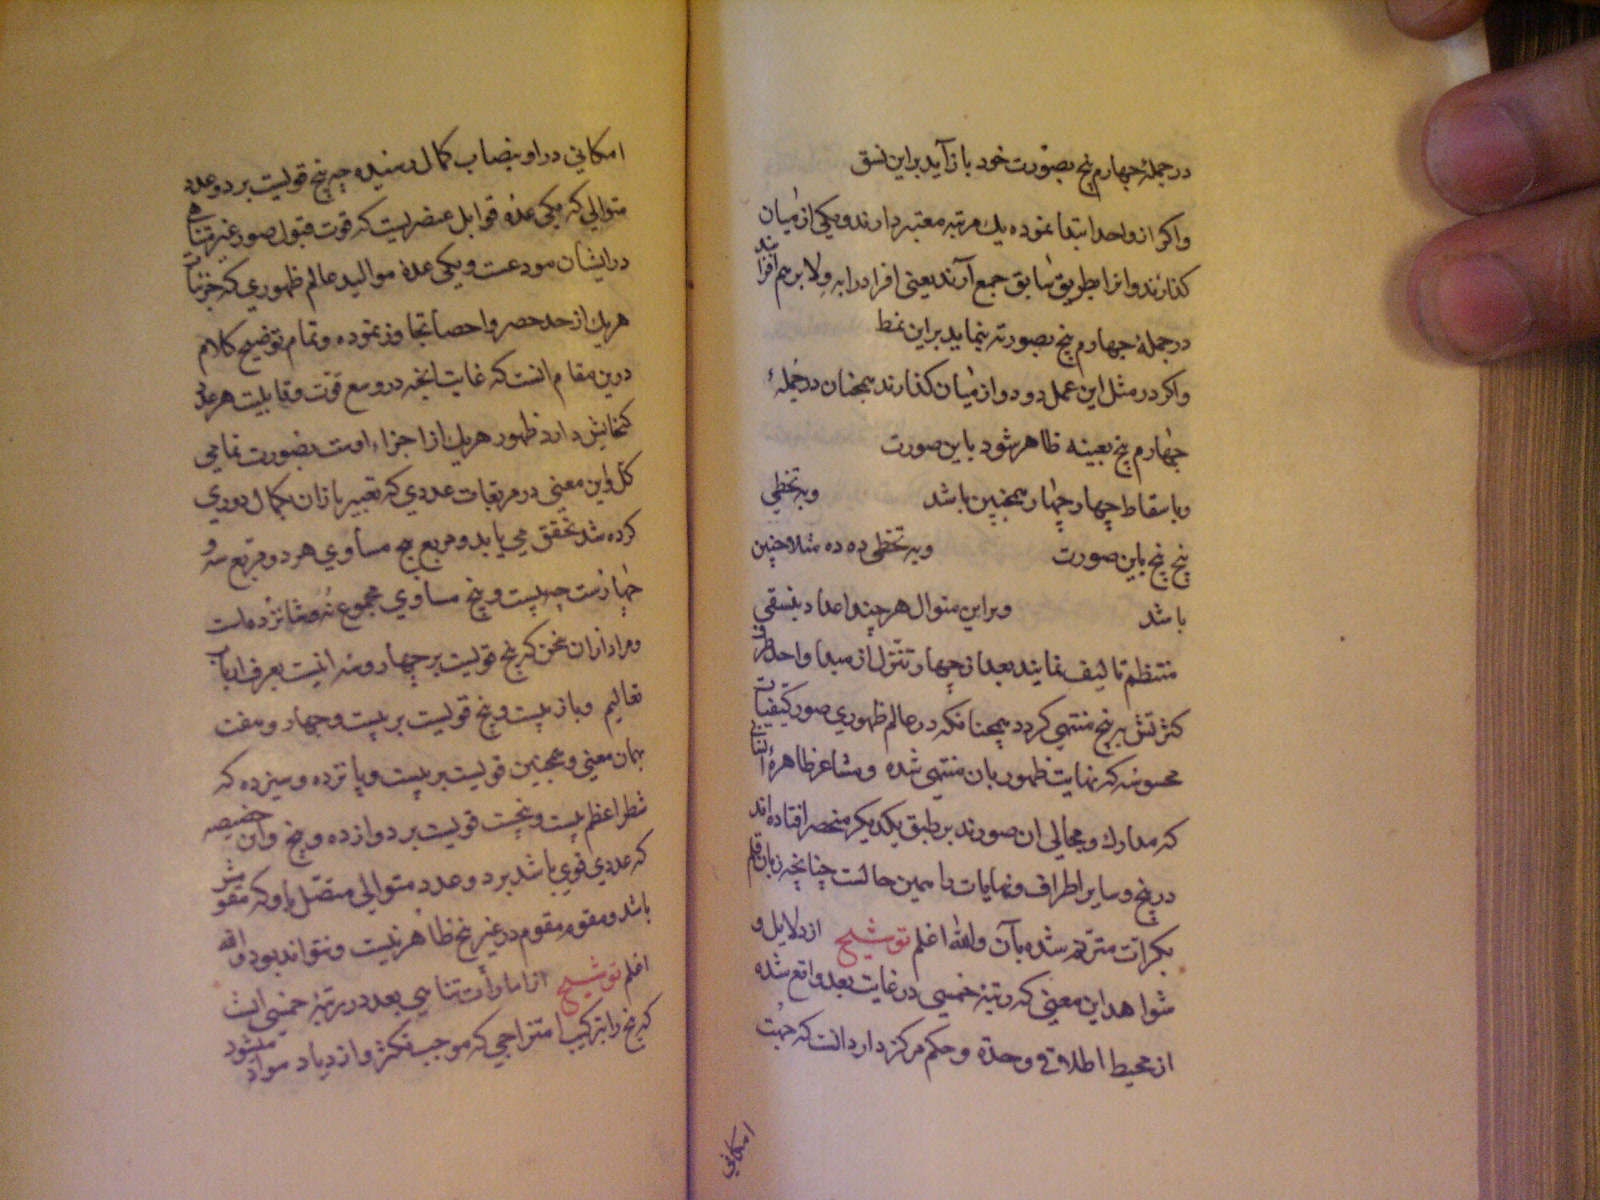 در جملهٔ چهارم پنج بصورت خود باز آید براین نسق
واکر از واحد ابتدا نموده یك مرتبه معتبر دارند ویکی از میان
کذارند وانرا بطریق سابق جمع آرند یعنی افراد را به ولا بر هم افزایند
در جملهٔ چهارم پنج بصورته بنماید براین نمط
واکر در مثل این عمل دو دو از میان کذارند همچنان در جملهٔ
چهارم پنج بعینه ظاهر شود باین صورت
وباسقاط چهار چهار همچنین باشد وبه تخطی
پنج پنج باین صورت وبه تخطی ده ده مثلا چنین
باشد وبراین منوال هر چند اعداد بنسقی
منتظم تالیف نمایند بعد از چهار تنزل از مبدا واحد طرف
کثرتش بر پنج منتهی کردد همچنانکه در عالم ظهوری صور کیفیات
محسوسه که نهایت ظهور بان منتهی شده ومشاعر ظاهرهٔ انسانی
که مدارك ومجالی ان صورند بر طبق یکدیکر منحصر افتاده اند
در پنج وسایر اطراف ونهایات را همین حالست چنانچه زبان قلم
بکرات مترنم شده بآن والله اعلم توشیح از دلایل و
شواهد این معنی که رتبهٔ خمسی در غایت بعد واقع شده
از محیط اطلاقی وحدة وحکم مرکز دارد انست که جهت
امکانی
امکانی در او بنصاب کمال رسیده چه پنج قویست بر دو عدد
متوالی که یکی عدد قوابل عنصریست که قوت قبول صور غیر متناهی
در ایشان مودعست ویکی عدد موالید عالم ظهوری که جزئیات
هر یك از حد حصر واحصا تجاوز نموده وتمام توضیح کلام
درین مقام انست که غایت انچه در وسع قوت وقابلیت هر عدد
کنجایش دارد ظهور هر یك از اجزاء اوست بصورت تمامی
کل واین معنی در مربعات عددی که تعبیر از ان بکمال دوری
کرده شد تحقق می یابد ومربع پنج مساوی هر دو مربع سه و
چهارست چه بیست وپنج مساوی مجموع نه وشانزده است
ومراد از ان سخن که پنج قویست بر چهار وسه اینست بعرف ارباب
تعالیم وباز بیست وپنج قویست بر بیست وچهار وهفت
بهمان معنی وهمچنین قویست بر بیست وپانزده وسیزده که
شطر اعظم بیست وپنجست قویست بر دوازده وپنج واین خصیصه
که عددی قوی باشد بر دو عدد متوالی متصل باو که مقومش
باشد ومقوم مقوم در غیر پنج ظاهر نیست ونتواند بود والله
اعلم توشیح از امارات تناسی بعد در رتبهٔ خمسی انست
که پنج را بترکیب امتزاجی که موجب تکثر وازدیاد مواد میشود